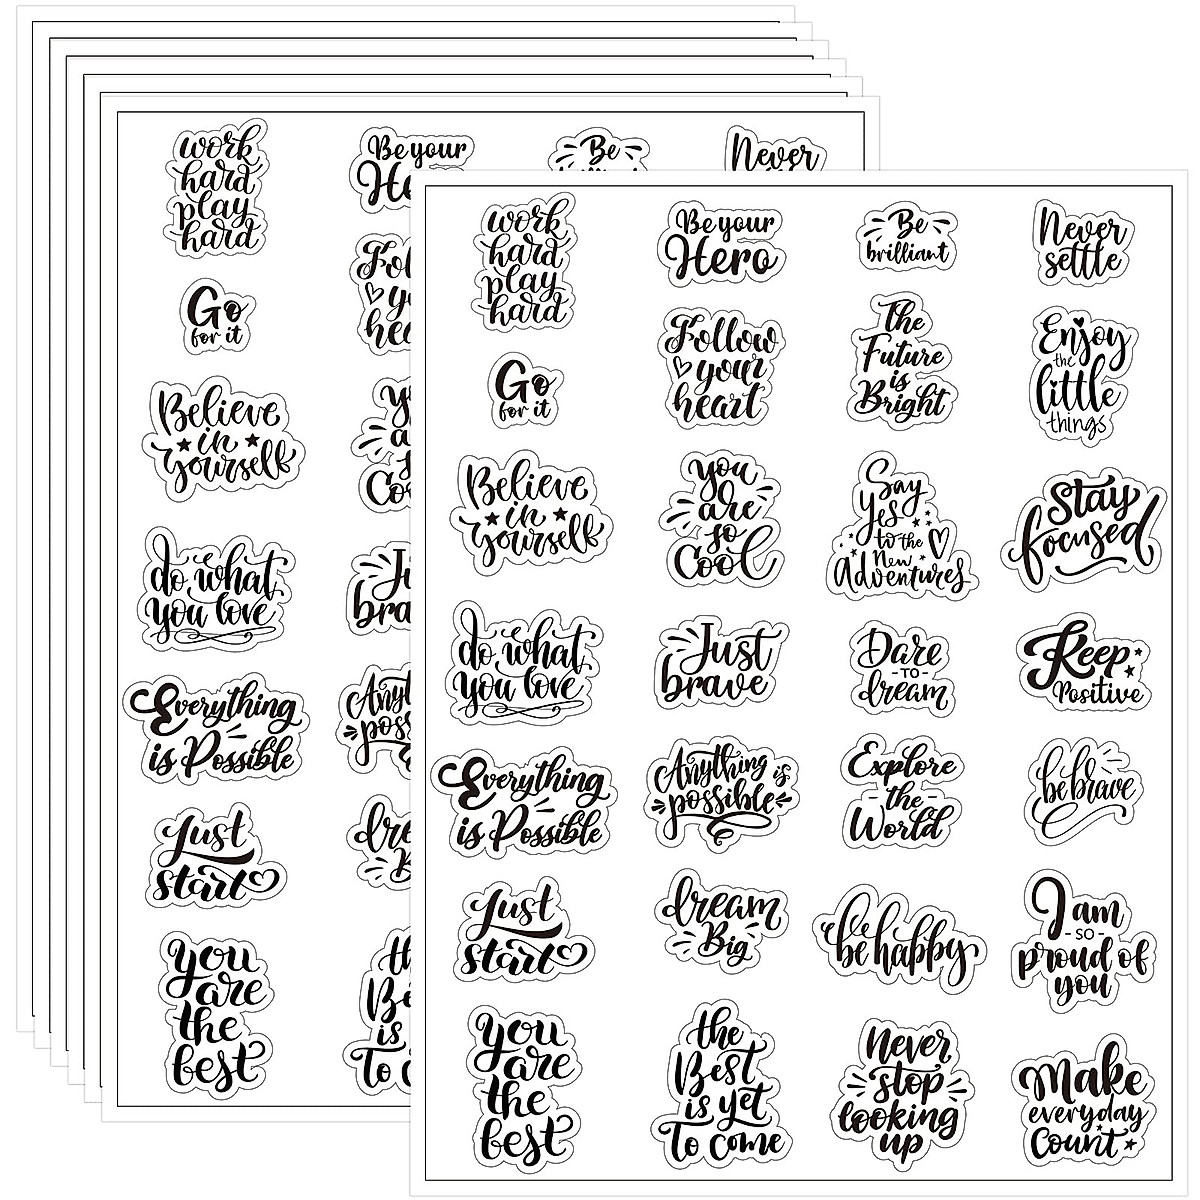 work
hard
play
hard
Be your
He
Be
Never
Go
for it
Believe
in
yourself
do what
you love
Everything
is Possible
Just
start
you
are
the
best
work
hard
play
hard
Be your
Hero
Be
brilliant
Never
settle
Go
for it
Follow
your
heart
The
Future
is
Bright
Enjoy
the
little
things
Believe
in
yourself
you
are
so
Cool
Say
Yes
to the
New
Adventures
Stay
focused
do what
you love
Just
brave
Dare
-TO-
dream
Keep
Positive
Everything
is Possible
Anything is
possible
Explore
-the-
World
be brave
Just
start
dream
Big
be happy
I am
-SO-
proud of
you
you
are
the
best
the
Best
is yet
To come
Never
stop
looking
up
Make
everyday
Count